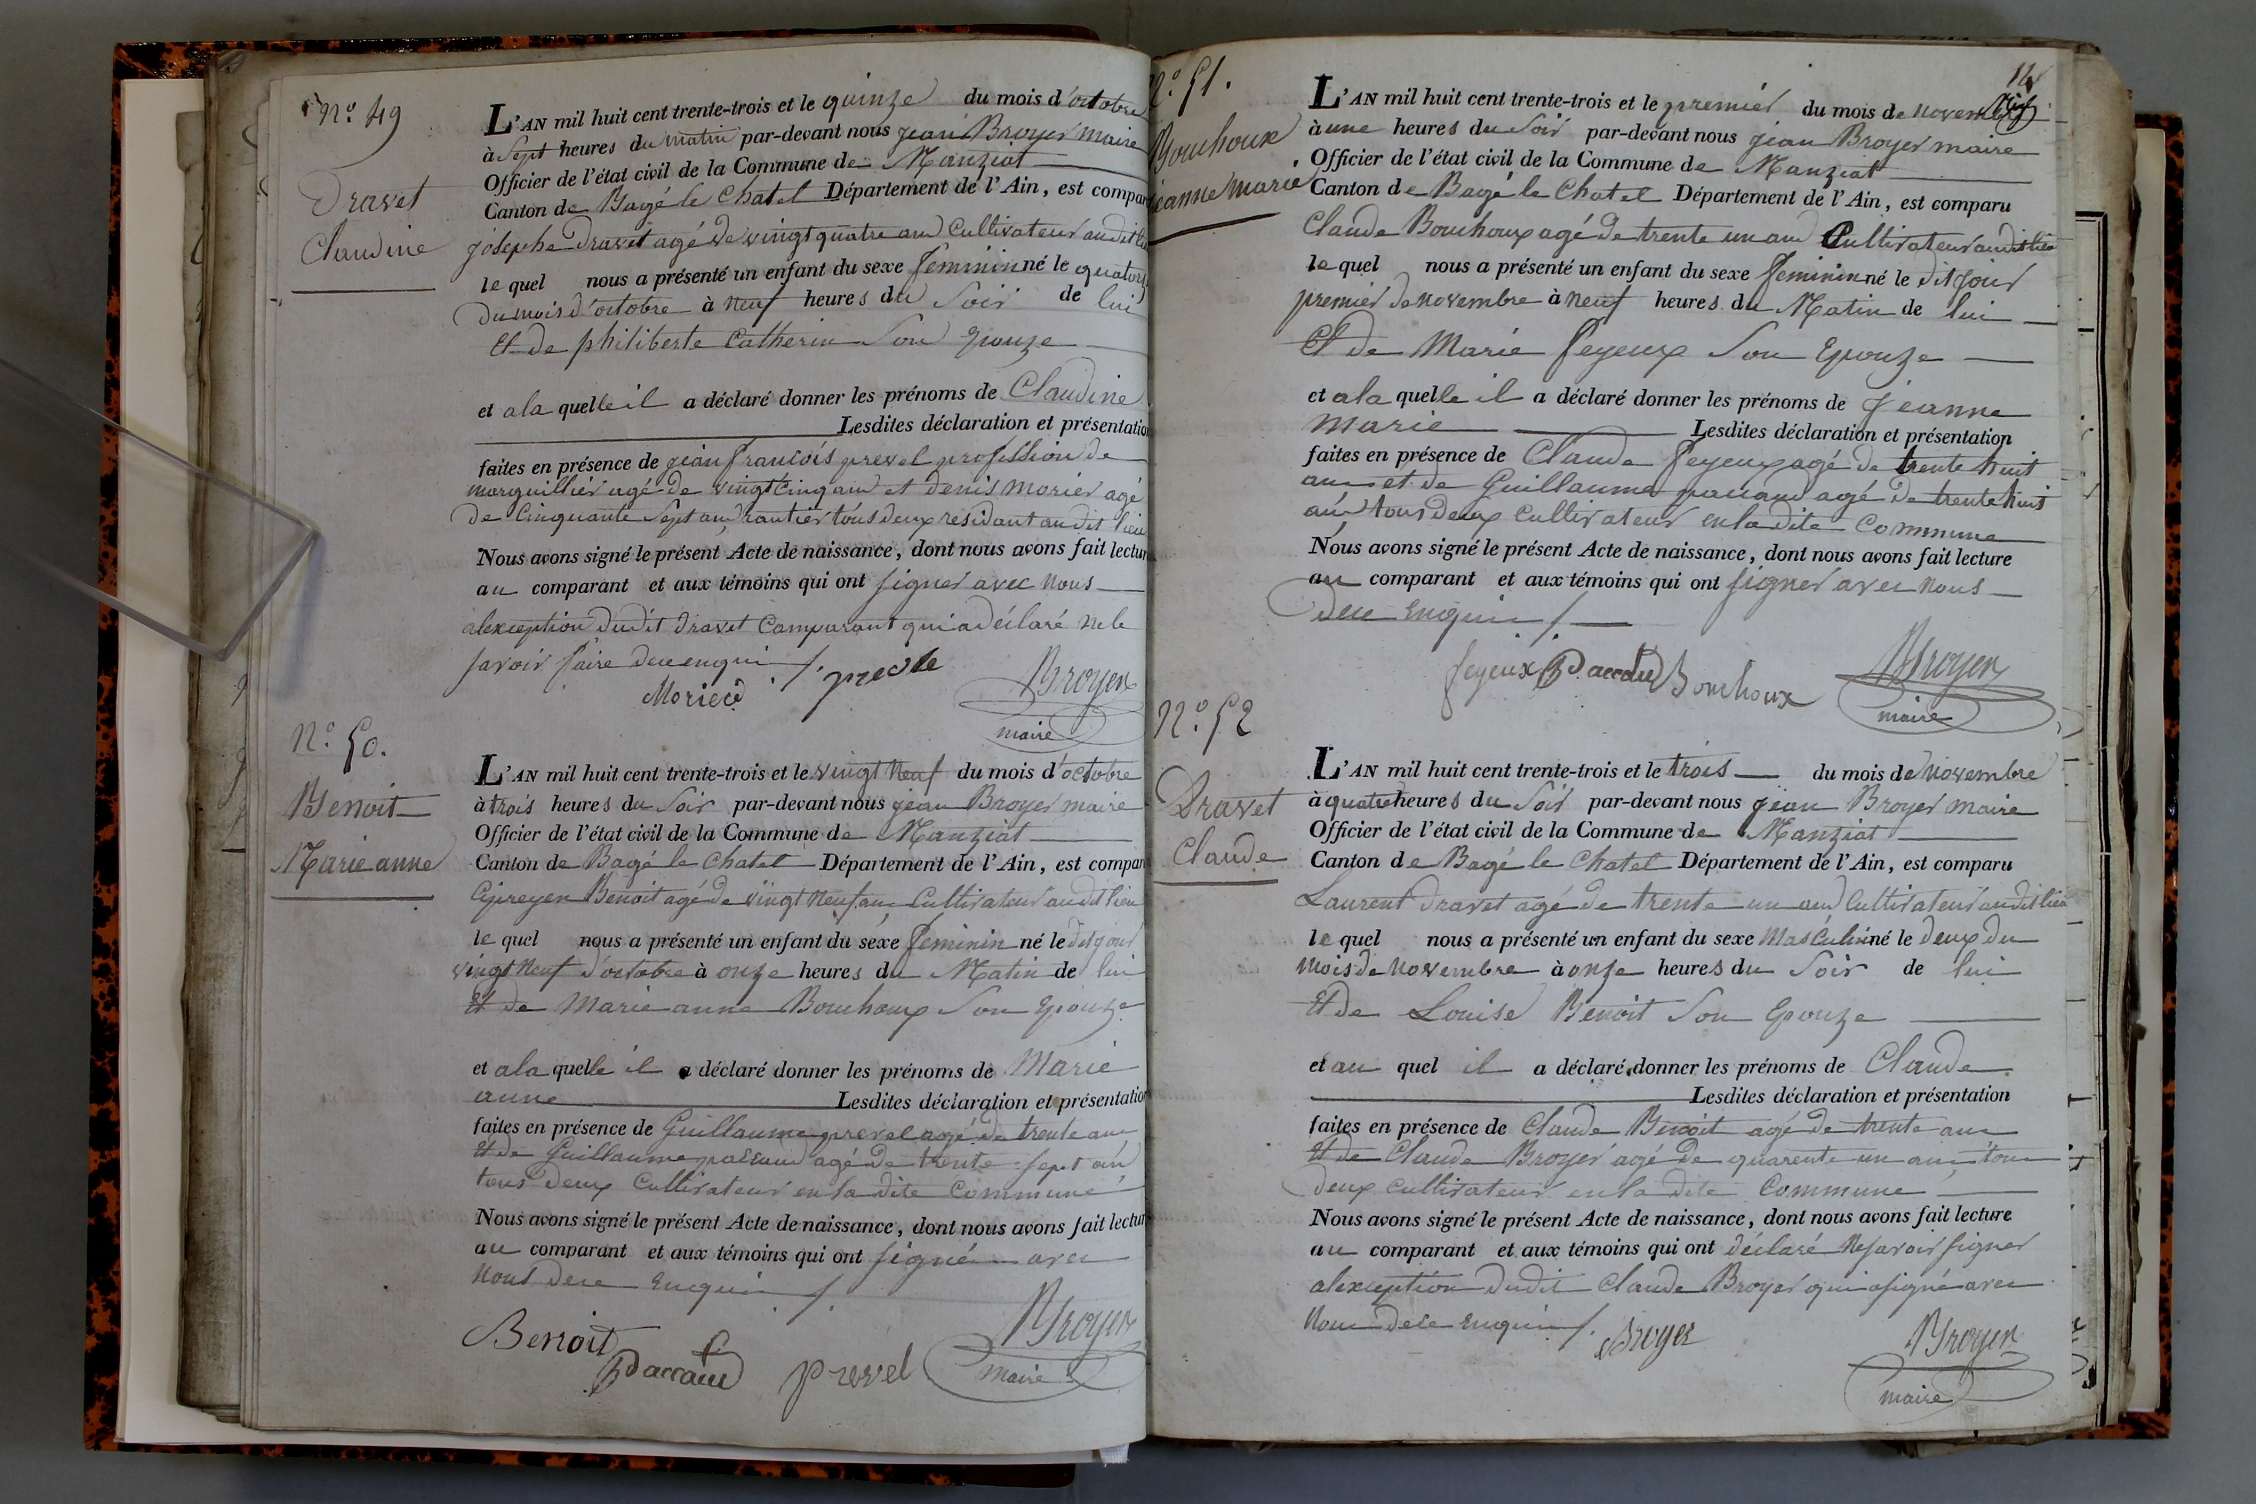 N.o 49
Dravet
Claudine
L'AN mil huit cent trente-trois et le quinze du mois d'octobre
à Sept heures du matin par-devant nous jean Broyer maire
Officier de l'état civil de la Commune de Manziat
Canton de Bagé le Chatel Département de l'Ain, est compar
josephe Dravet agé de vingt quatre ans Cultivateur audit lieu
le quel nous a présenté un enfant du sexe feminin né le quatorze
du mois d'octobre à neuf heures du Soir de lui
Et de philiberte Catherin Son Epouze
et a la quelle il a déclaré donner les prénoms de Claudine
Lesdites déclaration et présentation
faites en présence de jean françois prevel profession de
marguillier agé de vingt cinq ans et denis morier agé
de Cinquante Sept ans rantier tous deux residant audit lieu
Nous avons signé le présent Acte de naissance, dont nous avons fait lectur
au comparant et aux témoins qui ont signer avec nous
alexception dudit Dravet Comparant qui a déclaré ne le
savoir faire dece enquis /.
Morier
Broyer
maire
N.o 50.
Benoit
Marie anne
L'AN mil huit cent trente-trois et le vingt neuf du mois d'octobre
à trois heures du Soir par-devant nous jean Broyer maire
Officier de l'état civil de la Commune de Manziat
Canton de Bagé le Chatel Département de l'Ain, est compar
Benoit agé de vingt neuf ans Cultivateur audit lieu
le quel nous a présenté un enfant du sexe feminin né le dit jour
vingt neuf d'octobre à onze heures du Matin de lui
Et de Marie anne Bouchoux Son Epouze
et a la quelle il a déclaré donner les prénoms de Marie
anne Lesdites déclaration et présentation
faites en présence de Guillaume prevel agé de trente ans
Et de Guillaume agé de trente sept an
tous deux Cultivateur en la dite Commune
Nous avons signé le présent Acte de naissance, dont nous avons fait lectur
au comparant et aux témoins qui ont signé avec
nous dece enquis /.
Benoit
prevel
Broyer
maire
N.o 51.
Bouchoux
jeanne marie
L'AN mil huit cent trente-trois et le premier du mois de novembre
à une heures du Soir par-devant nous jean Broyer maire
Officier de l'état civil de la Commune de Manziat
Canton de Bagé le Chatel Département de l'Ain, est comparu
Claude Bouchoux agé de trente un ans Cultivateur audit lieu
le quel nous a présenté un enfant du sexe feminin né le dit jour
premier de novembre à neuf heures du Matin de lui
Et de Marie feyeux Son Epouze
et a la quelle il a déclaré donner les prénoms de jeanne
marie Lesdites déclaration et présentation
faites en présence de Claude feyeux agé de trente huit
ans et de Guillaume agé de trente huit
an tous deux Cultivateur en la dite Commune
Nous avons signé le présent Acte de naissance, dont nous avons fait lecture
au comparant et aux témoins qui ont signer avec nous
dece enquis /.
feyeux Bouchoux
Broyer
maire
N.o 52
Dravet
Claude
L'AN mil huit cent trente-trois et le trois du mois de novembre
à quatre heures du Soir par-devant nous jean Broyer maire
Officier de l'état civil de la Commune de Manziat
Canton de Bagé le Chatel Département de l'Ain, est comparu
Laurent Dravet agé de trente un ans Cultivateur audit lieu
le quel nous a présenté un enfant du sexe masculin né le deux du
mois de novembre à onze heures du Soir de lui
Et de Louise Benoit Son Epouze
et au quel il a déclaré donner les prénoms de Claude
Lesdites déclaration et présentation
faites en présence de Claude Benoit agé de trente ans
Et de Claude Broyer agé de quarente un ans tous
deux Cultivateur en la dite Commune
Nous avons signé le présent Acte de naissance, dont nous avons fait lecture
au comparant et aux témoins qui ont déclaré ne savoir signer
alexception dudit Claude Broyer qui a signé avec
nous dece enquis /.
Broyer
Broyer
maire